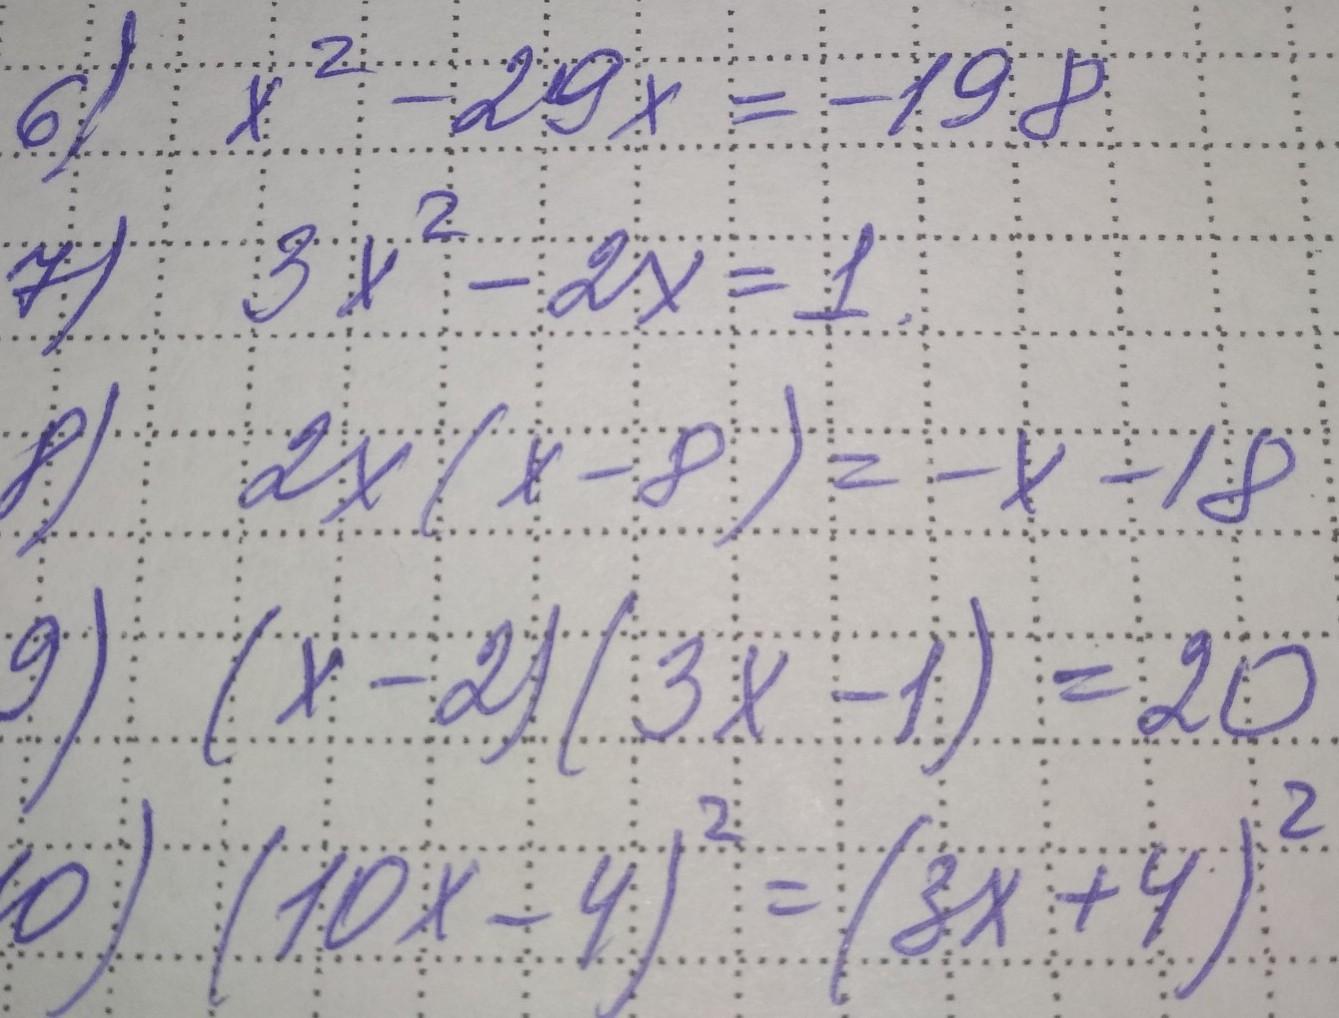 6) x² - 29x = -198
7) 3x² - 2x = 1.
8) 2x(x-8) = -x - 18
9) (x-2)(3x-1) = 20
10) (10x-4)² = (3x+4)²